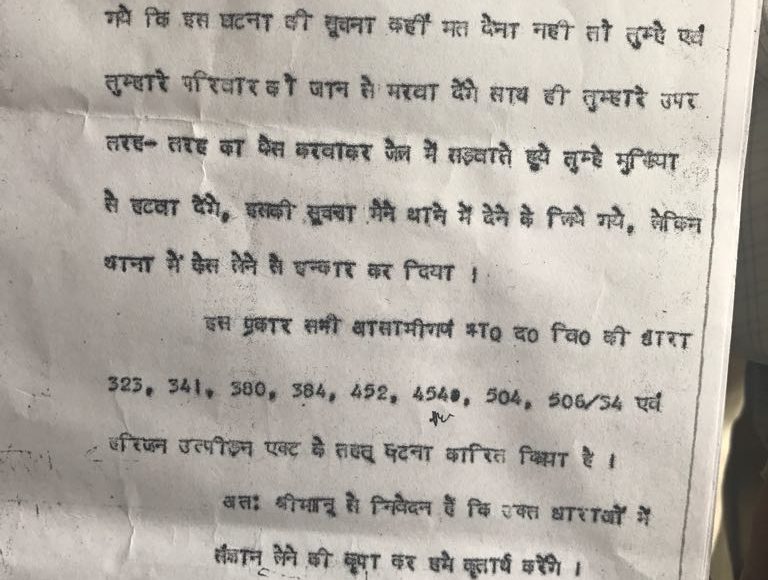 गये कि इस घटना की सूचना कहीं मत देना नही तो तुम्हे एवं
तुम्हारे परिवार को जान से मरवा देंगे साथ ही तुम्हारे उपर
तरह- तरह का केस करवाकर जेल में सड़वाते हुये तुम्हे मुखिया
से हटवा देंगे, इसकी सूचना मैने थाने में देने के लिये गये, लेकिन
थाना में केस लेने से इन्कार कर दिया ।
इस प्रकार सभी आसामीगणं भा0 द0 वि0 की धारा
323, 341, 380, 384, 452, 454, 504, 506/34 एवं
हरिजन उत्पीड़न एक्ट के तहत् घटना कारित किया है ।
अतः श्रीमान् से निवेदन है कि उक्त धाराओं में
संज्ञान लेने की कृपा कर हमे कृतार्थ करेंगे ।